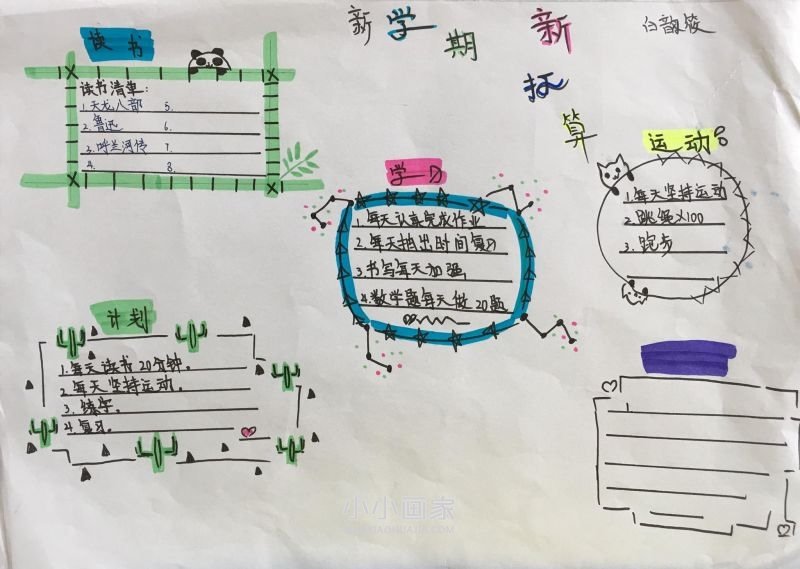 新学期新打算
白韻筱
读书
读书清单:
1.天龙八部 5.
2.鲁迅 6.
3.呼兰河传 7.
4. 8.
学习
1.每天认真完成作业
2.每天抽出时间复习
3.书写每天加强
4.数学题每天做20题
运动
1.每天坚持运动
2.跳绳×100
3.跑步
计划
1.每天读书20分钟。
2.每天坚持运动。
3.练字。
4.复习。
小小画家